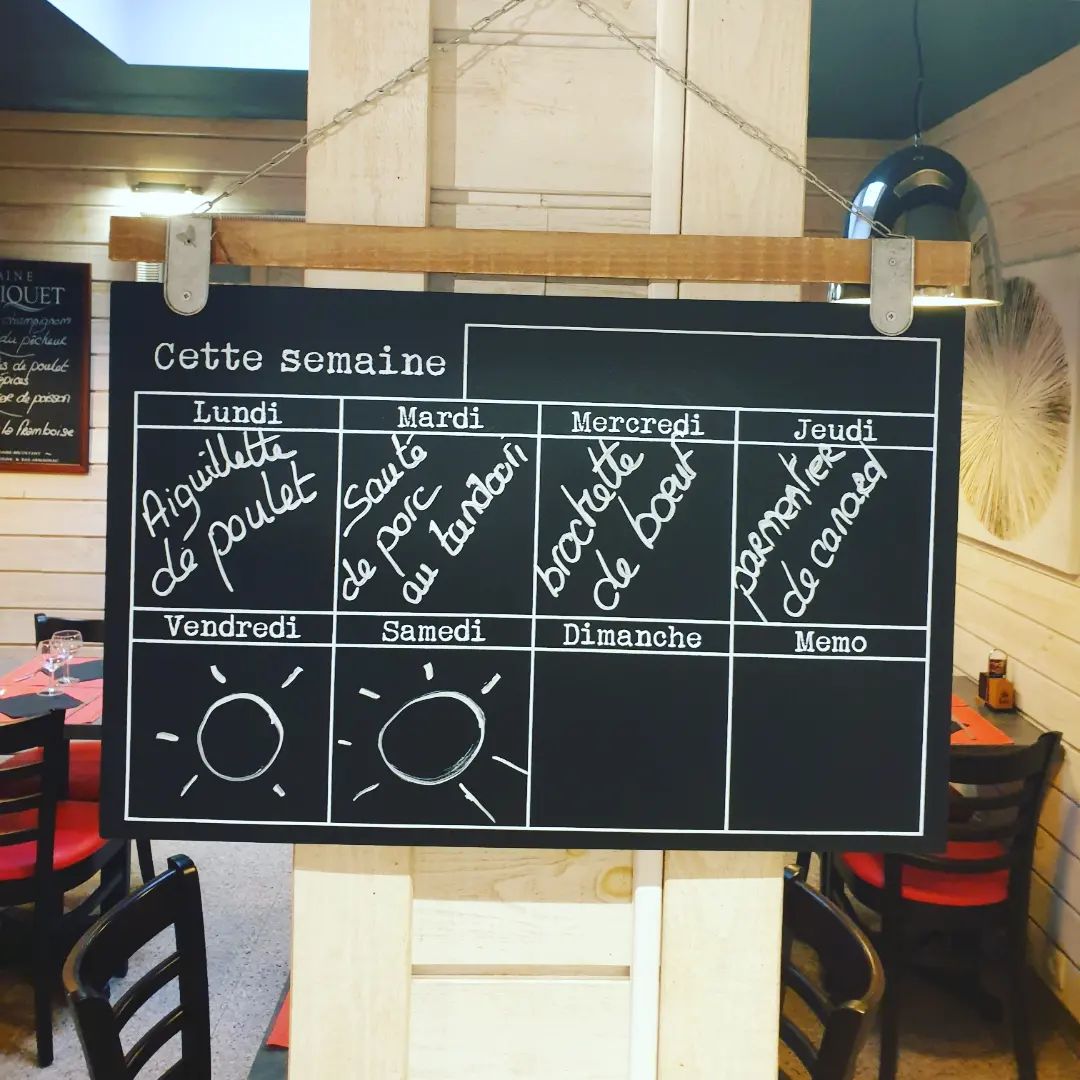 Cette semaine
Lundi
Mardi
Mercredi
Jeudi
Aiguillette
de poulet
Sauté
de porc
au tandoori
brochette
de boeuf
parmentier
de canard
Vendredi
Samedi
Dimanche
Memo
AINE
IQUET
champignons
du pêcheur
de poulet
épices
de poisson
la framboise